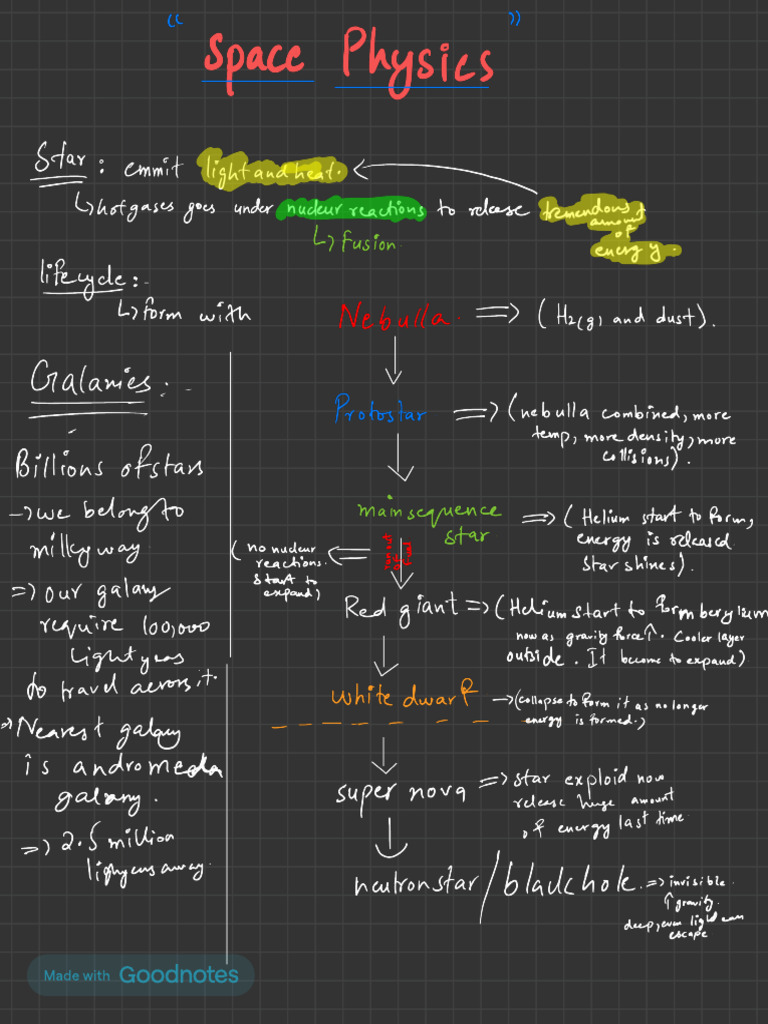 “ Space Physics ”
Star : emmit light and heat.
↳ hot gases goes under nuclear reactions to release tremendous
amount
of
energy.
↳ Fusion.
lifecycle :-
↳ form with Nebulla. => ( H2(g) and dust ).
Protostar => ( nebulla combined, more
temp, more density, more
collisions ).
main sequence
star => ( Helium start to form,
energy is released
star shines ).
( no nuclear
reactions.
start to
expand )
Red giant => ( Helium start to form beryllium
now as gravity force ↑. Cooler layer
outside. It become to expand )
white dwarf -> ( collapse to form it as no longer
energy is formed. )
super nova => star exploid now
release huge amount
of energy last time.
neutron star / blackhole. => invisible.
↑ gravity.
deep, even light can
escape
Galaxies :-
Billions of stars
-> we belong to
milky way.
=> our galaxy
require 100,000
light years
to travel across it.
=> Nearest galaxy
is andromeda
galaxy.
=> 2.5 million
lighyears away.
Made with Goodnotes